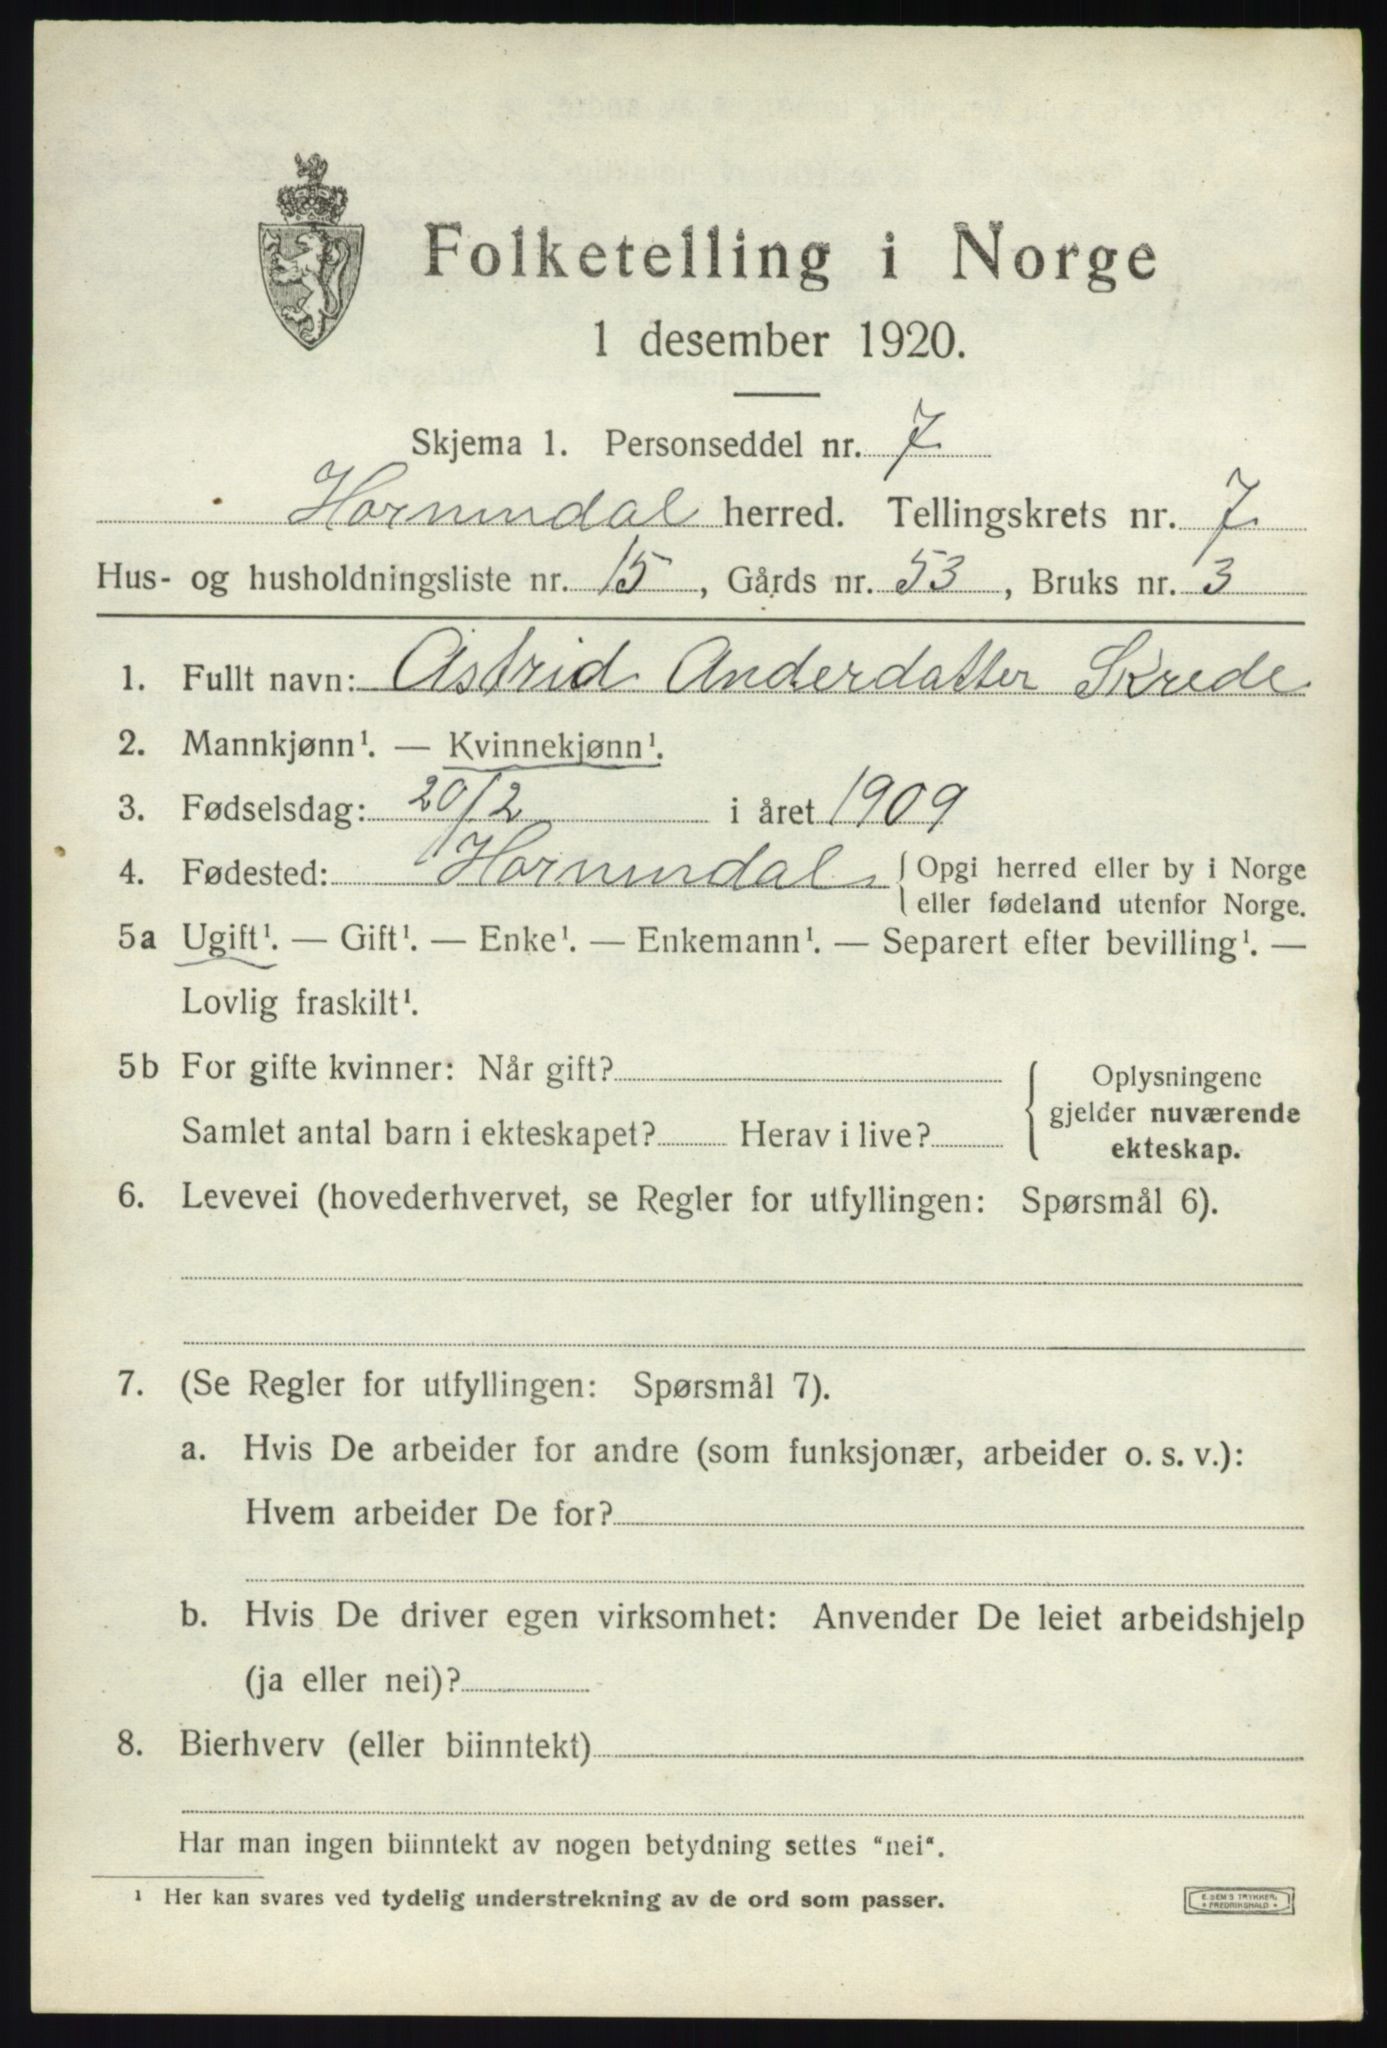 Folketelling i Norge
1 desember 1920.
Skjema 1. Personseddel nr. 7
Hornindal herred. Tellingskrets nr. 7
Hus- og husholdningsliste nr. 15, Gårds nr. 53, Bruks nr. 3
1. Fullt navn: Astrid Anderdatter Skrede
2. Mannkjønn¹. — Kvinnekjønn¹.
3. Fødselsdag: 20/2 i året 1909
4. Fødested: Hornindal { Opgi herred eller by i Norge
eller fødeland utenfor Norge.
5a Ugift¹. — Gift¹. — Enke¹. — Enkemann¹. — Separert efter bevilling¹. —
Lovlig fraskilt¹.
5b For gifte kvinner: Når gift?
Samlet antal barn i ekteskapet? Herav i live?
Oplysningene
gjelder nuværende
ekteskap.
6. Levevei (hovederhvervet, se Regler for utfyllingen: Spørsmål 6).
7. (Se Regler for utfyllingen: Spørsmål 7).
a. Hvis De arbeider for andre (som funksjonær, arbeider o. s. v.):
Hvem arbeider De for?
b. Hvis De driver egen virksomhet: Anvender De leiet arbeidshjelp
(ja eller nei)?
8. Bierhverv (eller biinntekt)
Har man ingen biinntekt av nogen betydning settes "nei".
¹ Her kan svares ved tydelig understrekning av de ord som passer.
E. SEM'S TRYKKERI,
* FREDRIKSHALD *